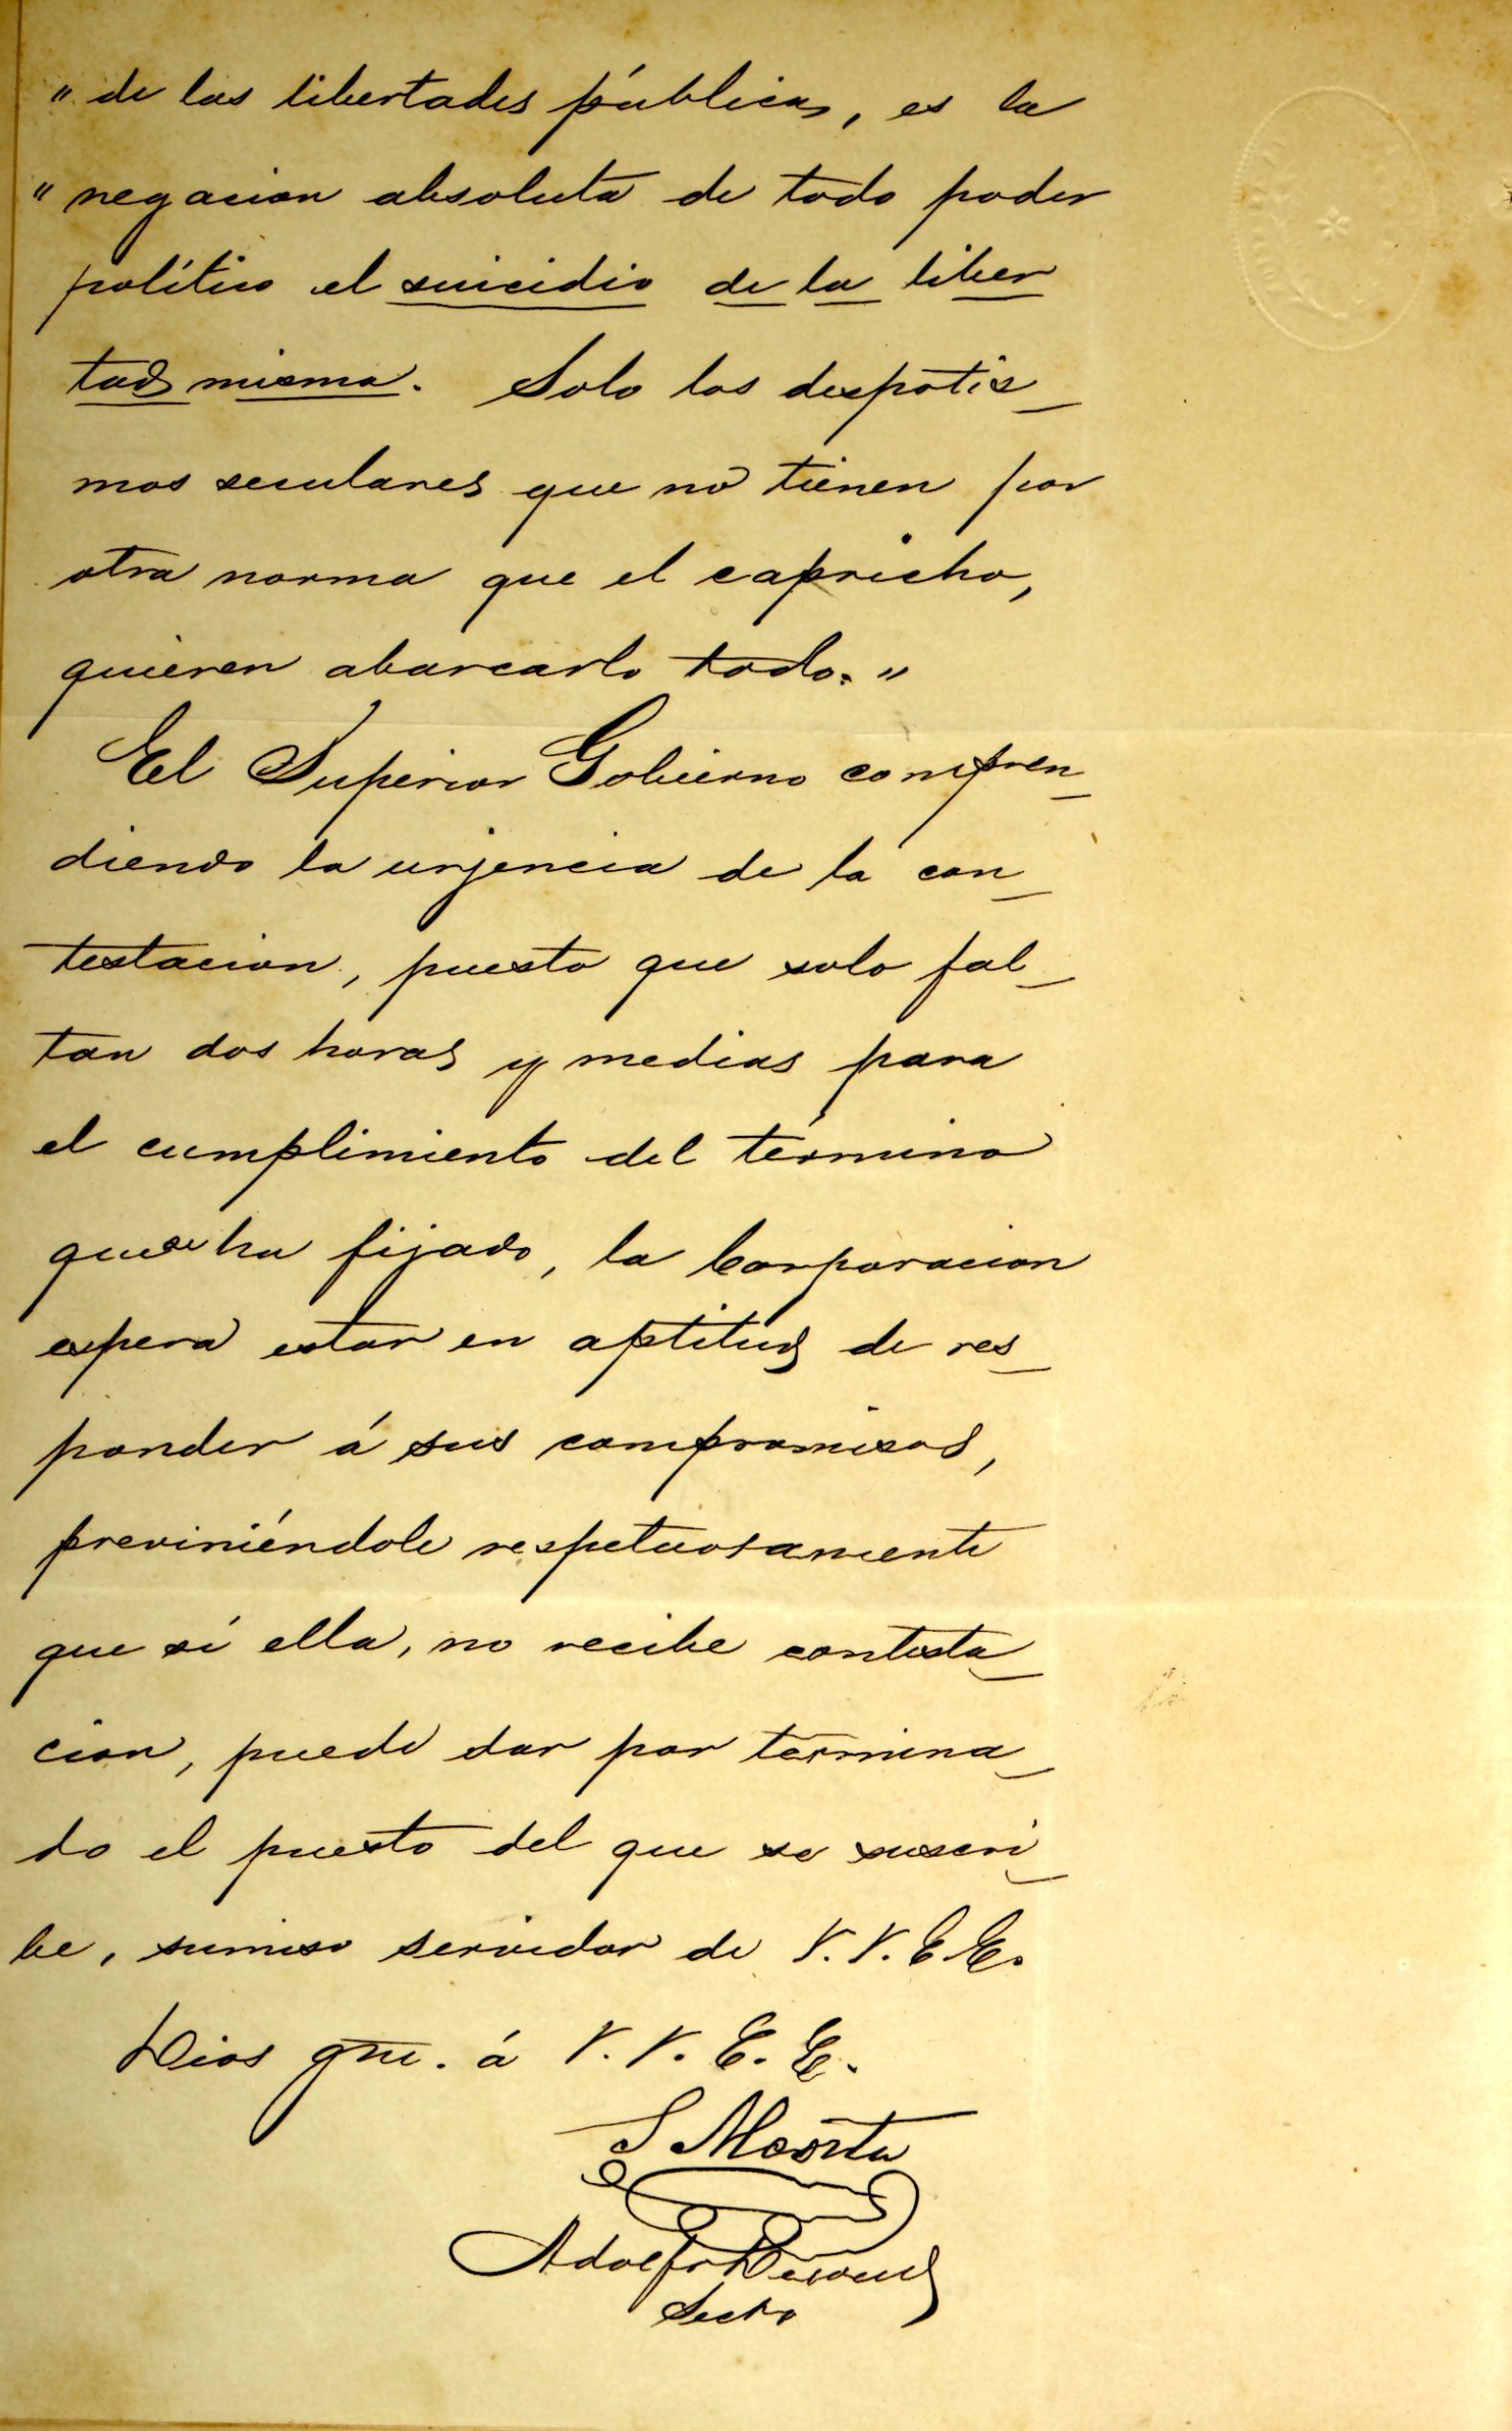 " de las libertades públicas, es la
" negacion absoluta de todo poder
político el suicidio de la liber
tad misma. Solo los despotis_
mos seculares que no tienen por
otra norma que el capricho,
quieren abarcarlo todo. "
El Superior Gobierno compren_
diendo la urjencia de la con_
testacion, puesto que solo fal_
tan dos horas y medias para
el cumplimiento del término
que se ha fijado, la Corporacion
espera estar en aptitud de res_
ponder á sus compromisos,
previniéndole respetuosamente
que si ella, no recibe contesta_
cion, puede dar por termina_
do el puesto del que se suscri_
be, sumiso servidor de V. V. E E.
Dios gue. á V. V. E. E.
Adolfo
Secto